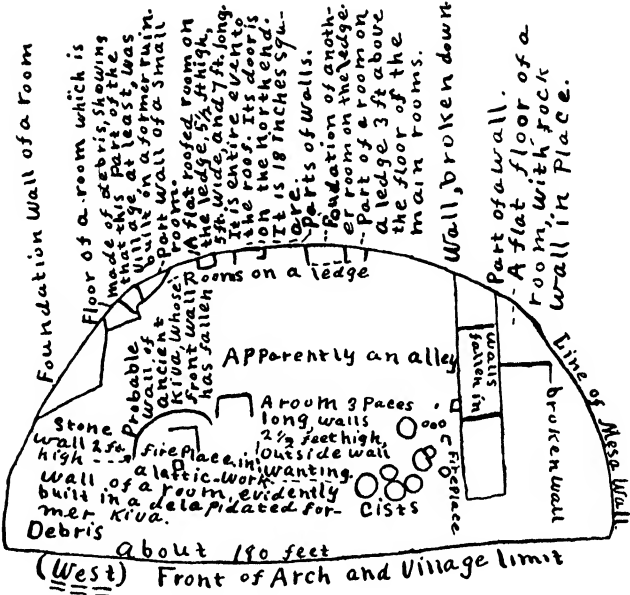 Foundation wall of a room
Floor of a room which is
made of debris, showing
that this Part of the
village, at least, was
built on a former ruin.
Part wall of a small
room.
A flat roofed room on
the ledge, 5½ ft high,
5ft. wide, and 7 ft. long.
It is entire even to
the roof. Its door is
on the North end.
It is 18 inches squ-
are.
Parts of walls.
Foudation of anoth-
er room on the ledge.
Part of a room on
a ledge 3 ft above
the floor of the
main rooms.
Wall, broken down
Part of a wall.
A flat floor of a
room, with rock
wall in Place.
Rooms on a ledge
Probable
wall of
ancient
Kiva, whose
front wall
has fallen
Apparently an alley
walls
fallen in
Line of Mesa Wall.
broken wall
Stone
wall 2 ft.
high
A roum 3 Paces
long, walls
2½ feet high,
Outside wall
wanting.
fire Place, in
a lattic-work
wall of a room, evidently
built in a delapidated for-
mer Kiva.
Cists
Fireplace
Debris
about 190 feet
(West) Front of Arch and Village limit